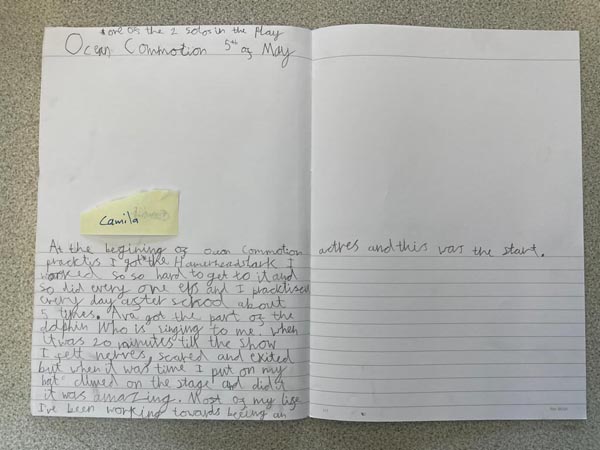 *one of the 2 solos in the play
Ocean Commotion 5th of May
Camila
At the begining of ocean Commotion
practtis I got the* Hamerheadshark I
worked so so hard to get to it and
so did every one els and I practtised
every day after school about
5 times. Ava got the part of the
dolphin who is singing to me. When
it was 20 minutes till the show
I felt nerves, scared and exited
but when it was time I put on my
hat climed on the stage and did it
it was amazing. Most of my life
I've been working towards beeing an
actres and this was the start.